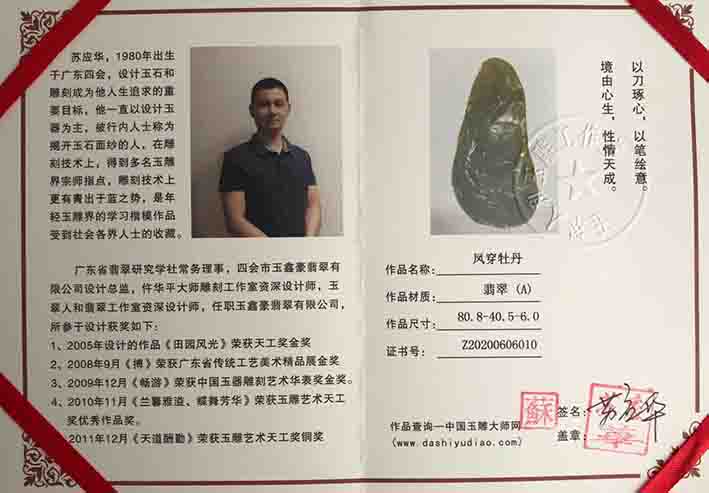 苏应华，1980年出生
于广东四会，设计玉石和
雕刻成为他人生追求的重
要目标，他一直以设计玉
器为主，被行内人士称为
揭开玉石面纱的人，在雕
刻技术上，得到多名玉雕
界宗师指点，雕刻技术上
更有青出于蓝之势，是年
轻玉雕界的学习楷模作品
受到社会各界人士的收藏。
广东省翡翠研究学社常务理事，四会市玉鑫豪翡翠有
限公司设计总监，仵华平大师雕刻工作室资深设计师，玉
翠人和翡翠工作室资深设计师，任职玉鑫豪翡翠有限公司，
所参于设计获奖如下：
1、2005年设计的作品《田园风光》荣获天工奖金奖
2、2008年9月《搏》荣获广东省传统工艺美术精品展金奖
3、2009年12月《畅游》荣获中国玉器雕刻艺术华表奖金奖。
4、2010年11月《兰馨雅溢、蝶舞芳华》荣获玉雕艺术天工
奖优秀作品奖。
5、2011年12月《天道酬勤》荣获玉雕艺术天工奖铜奖
以刀琢心，以笔绘意。
境由心生，性情天成。
作品名称：凤穿牡丹
作品材质：翡翠（A）
作品尺寸：80.8-40.5-6.0
证书号：Z20200606010
蘇
签名：苏应华
盖章：
作品查询—中国玉雕大师网
(www.dashiyudiao.com)